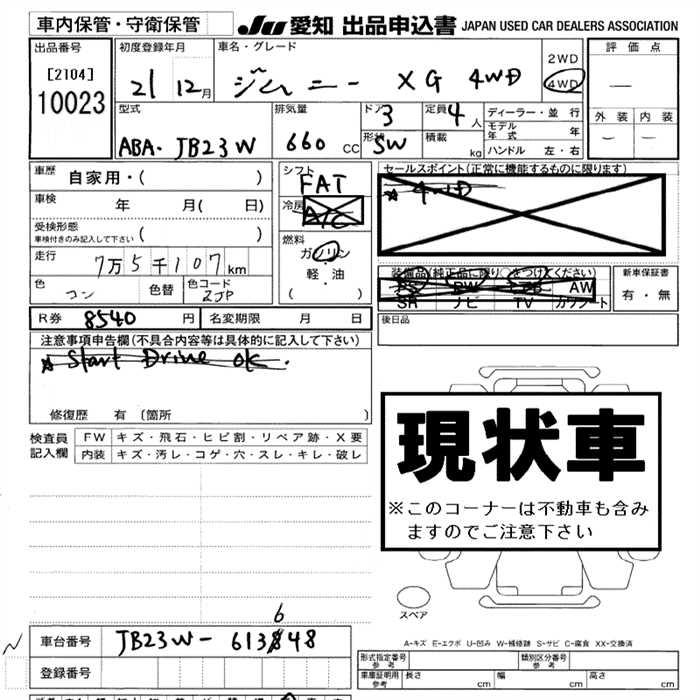 車内保管・守衛保管
JU 愛知 出品申込書 JAPAN USED CAR DEALERS ASSOCIATION
出品番号
[2104]
10023
初度登録年月
21 12月
車名・グレード
ジムニー XG 4WD
2WD
4WD
評価点
―
外装 内装
― ―
型式
ABA- JB23W
排気量
660 cc
ドア
3
形状
SW
定員
4人
積載
kg
ディーラー・並行
モデル年式 年
ハンドル 左・右
車歴 自家用・( )
車検 年 月( 日)
受検形態
車検付きのみ記入して下さい ( )
走行 7万5千107km
色 コン
色替
色コード
ZJP
シフト
FAT
冷房
A/C
燃料
ガソリン
軽・油
( )
セールスポイント(正常に機能するものに限ります)
☆ 4WD
装備品(純正品に限り○をつけてください)
PS PW エアB AW
SR ナビ TV カワシート
新車保証書
有・無
R券 8540 円
名変期限 月 日
後日品
注意事項申告欄(不具合内容等は具体的に記入して下さい)
☆ Start Drive OK.
修復歴 有 (箇所 )
検査員記入欄
FW キズ・飛石・ヒビ割・リペア跡・X要
内装 キズ・汚レ・コゲ・穴・スレ・キレ・破レ
現状車
※このコーナーは不動車も含み
ますのでご注意下さい
スペア
A-キズ E-エクボ U-凹み W-補修跡 S-サビ C-腐食 XX-交換済
6
車台番号 JB23W-613848
登録番号
形式指定番号
参考
類別区分番号
参考
車庫証明用
参考
長さ cm 幅 cm 高さ cm